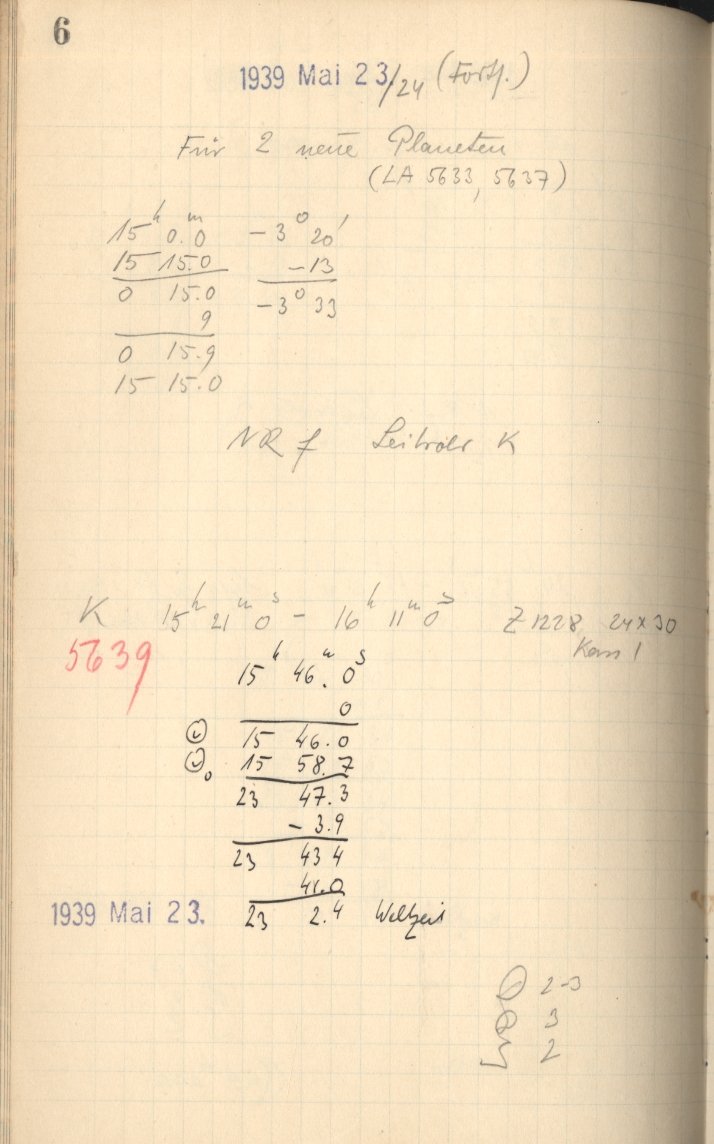 6
1939 Mai 23/24 (Forts.)
Für 2 neue Planeten
(LA 5633, 5637)
15ʰ 0.0ᵐ −3° 20′
15 15.0 −13
0 15.0 −3° 33
9
0 15.9
15 15.0
NR f Leitrohr K
K 15ʰ 21ᵐ 0ˢ − 16ʰ 11ᵐ 0ˢ Z 1228 24×30
5639 Kass 1
15ʰ 46.ᵐ 0ˢ
0
15 46.0
15 58.7
23 47.3
− 3.9
23 43 4
41.0
1939 Mai 23. 23 2.4 Weltzeit
2-3
3
2